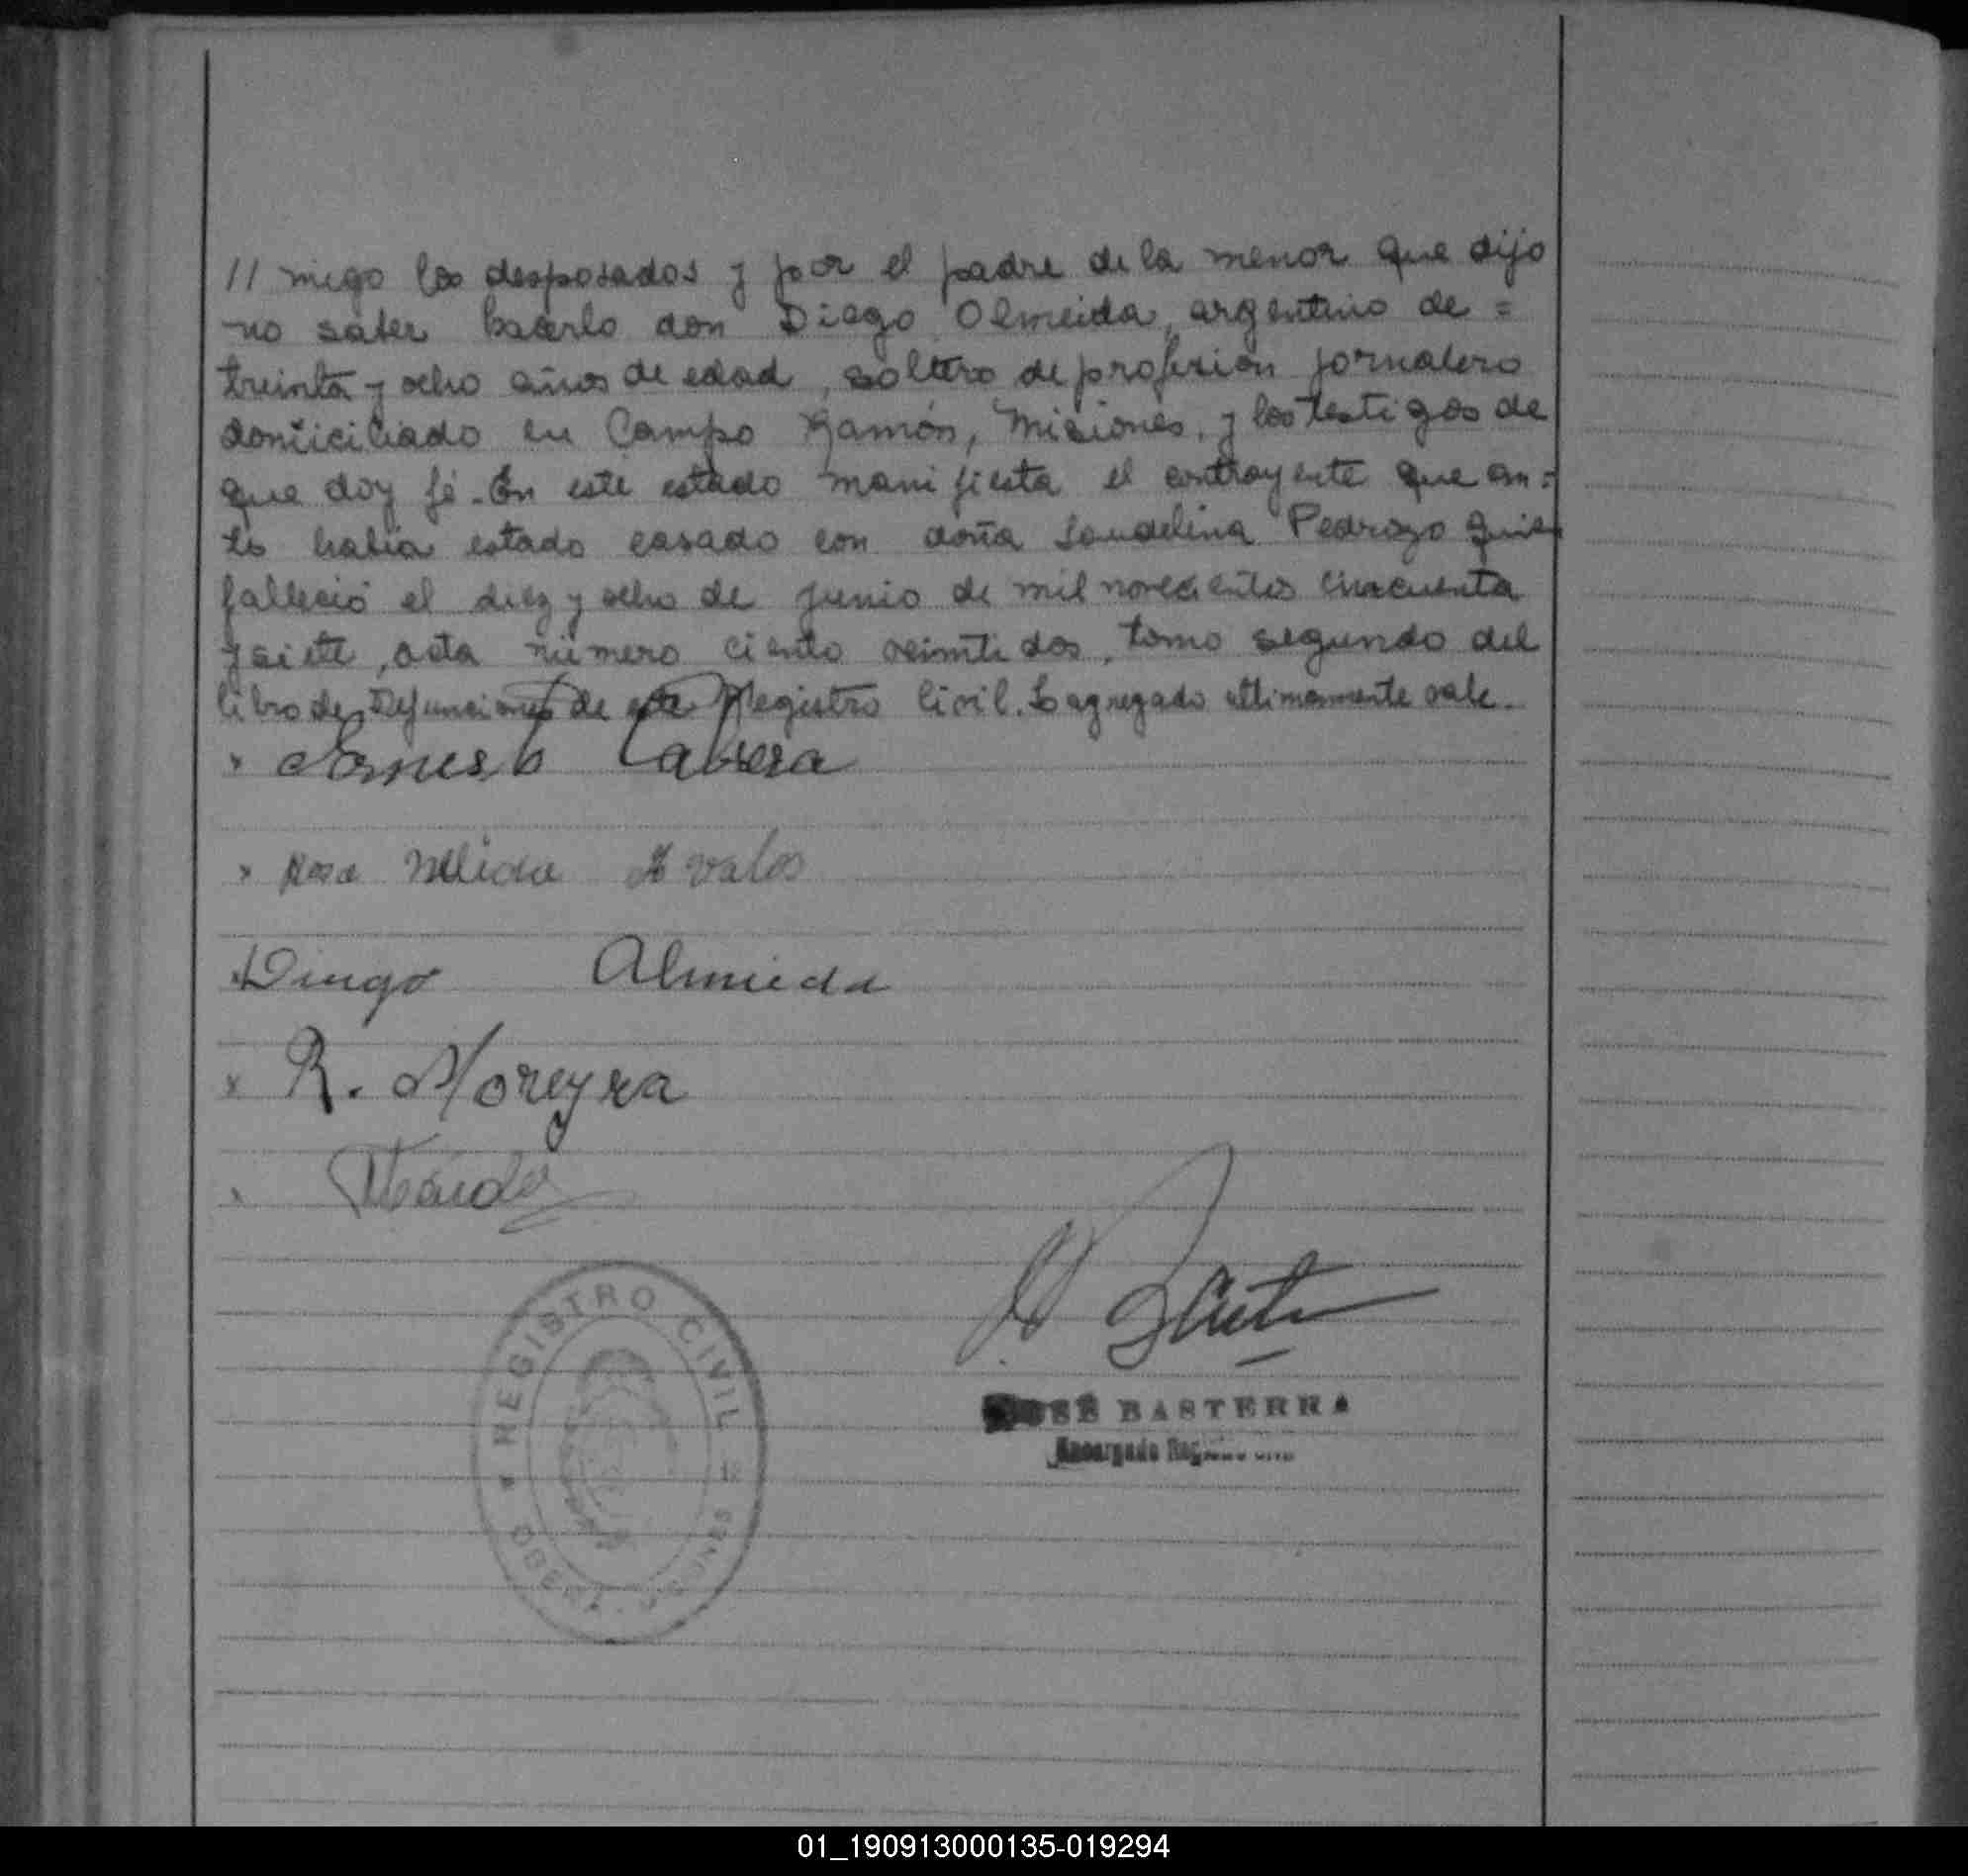 // migo los desposados y por el padre de la menor que dijo
no saber hacerlo don Diego Olmeida, argentino de =
treinta y ocho años de edad, soltero de profesión jornalero
domiciliado en Campo Ramón, Misiones, y los testigos de
que doy fé. En este estado manifiesta el contrayente que an=
tes habia estado casado con doña Laudelina Pedrozo quien
falleció el diez y ocho de junio de mil novecientos cincuenta
y siete, acta número ciento veintidos, tomo segundo del
libro de Defunciones de este Registro Civil. Lo agregado ultimamente vale.
Ernesto Cabrera
Rosa Nelida Avalos
Diego Almeida
R. Moreyra
REGISTRO CIVIL
JOSÉ BASTERRA
Encargado Registro Civil
01_190913000135-019294